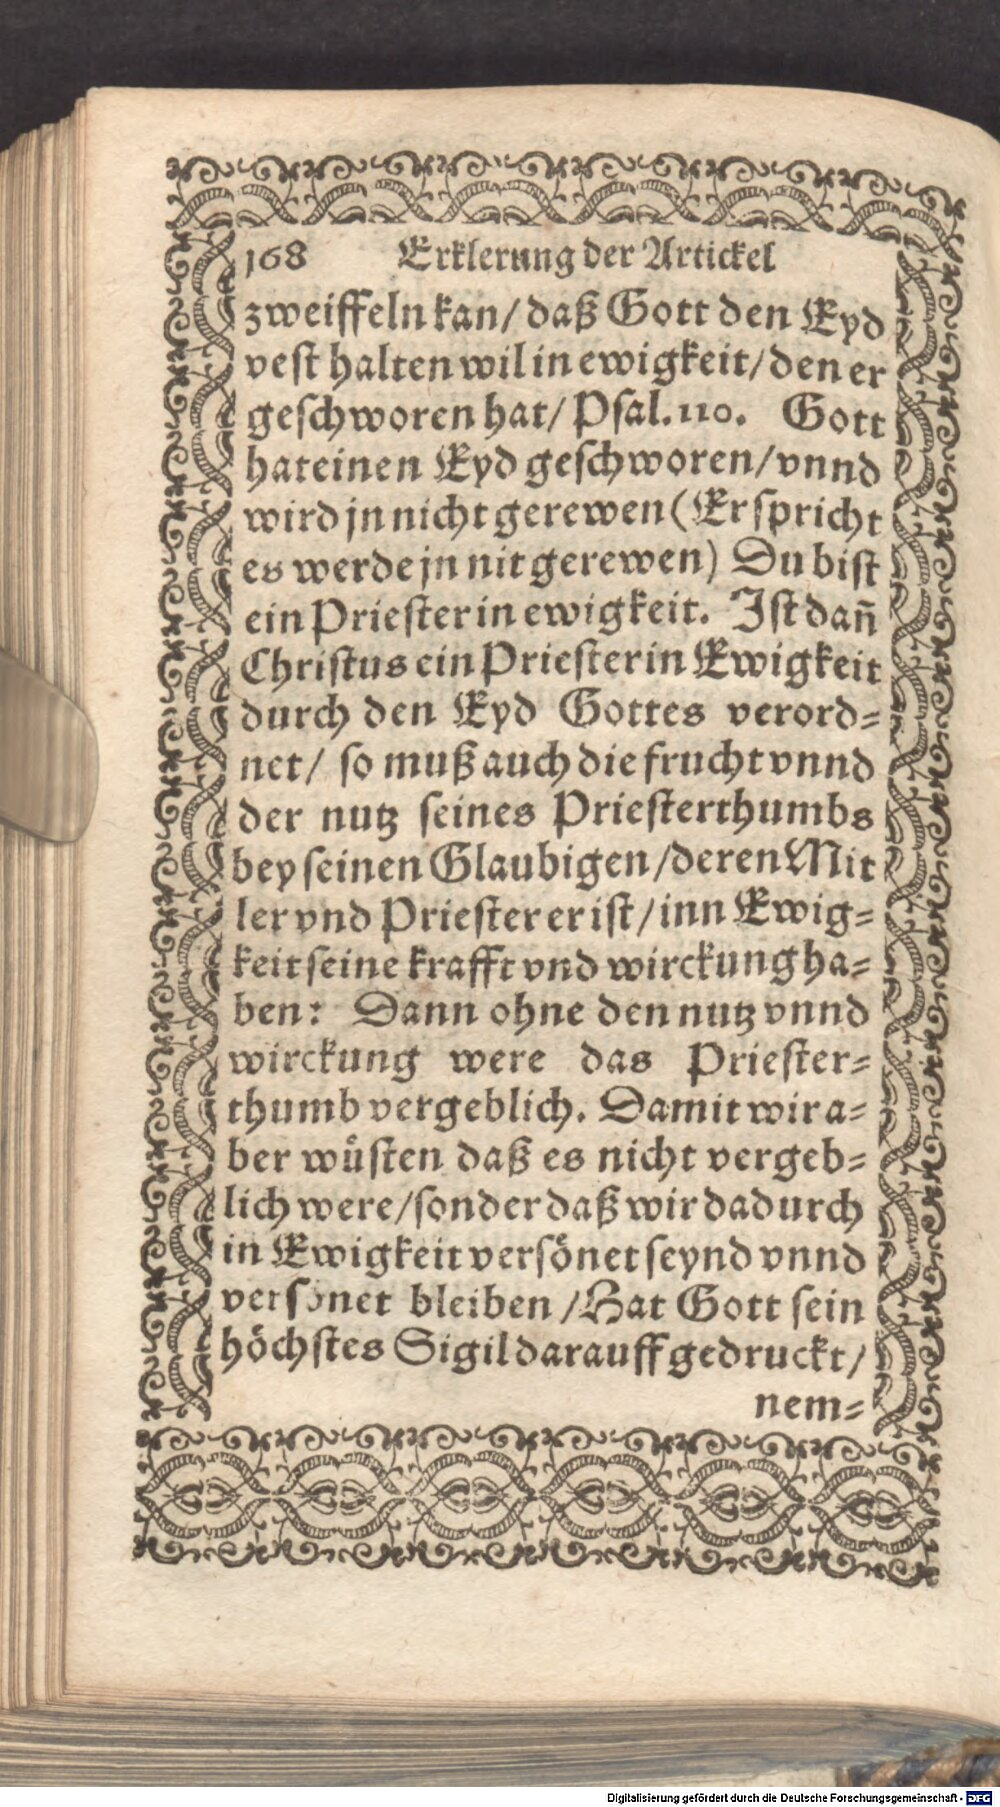 168 Erklerung der Artickel
zweiffeln kan/ daß Gott den Eyd
vest halten wil in ewigkeit/ den er
geschworen hat/ Psal. 110. Gott
hat einen Eyd geschworen/ vnnd
wird jn nicht gerewen (Er spricht
es werde jn nit gerewen) Du bist
ein Priester in ewigkeit. Ist dañ
Christus ein Priester in Ewigkeit
durch den Eyd Gottes verord⸗
net/ so muß auch die frucht vnnd
der nutz seines Priesterthumbs
bey seinen Glaubigen/ deren Mit
ler vnd Priester er ist/ inn Ewig⸗
keit seine krafft vnd wirckung ha⸗
ben: Dann ohne den nutz vnnd
wirckung were das Priester⸗
thumb vergeblich. Damit wir a⸗
ber wuͤsten daß es nicht vergeb⸗
lich were/ sonder daß wir dadurch
in Ewigkeit versoͤnet seynd vnnd
versoͤnet bleiben/ Hat Gott sein
hoͤchstes Sigil darauff gedruckt/
nem⸗
Digitalisierung gefördert durch die Deutsche Forschungsgemeinschaft - DFG